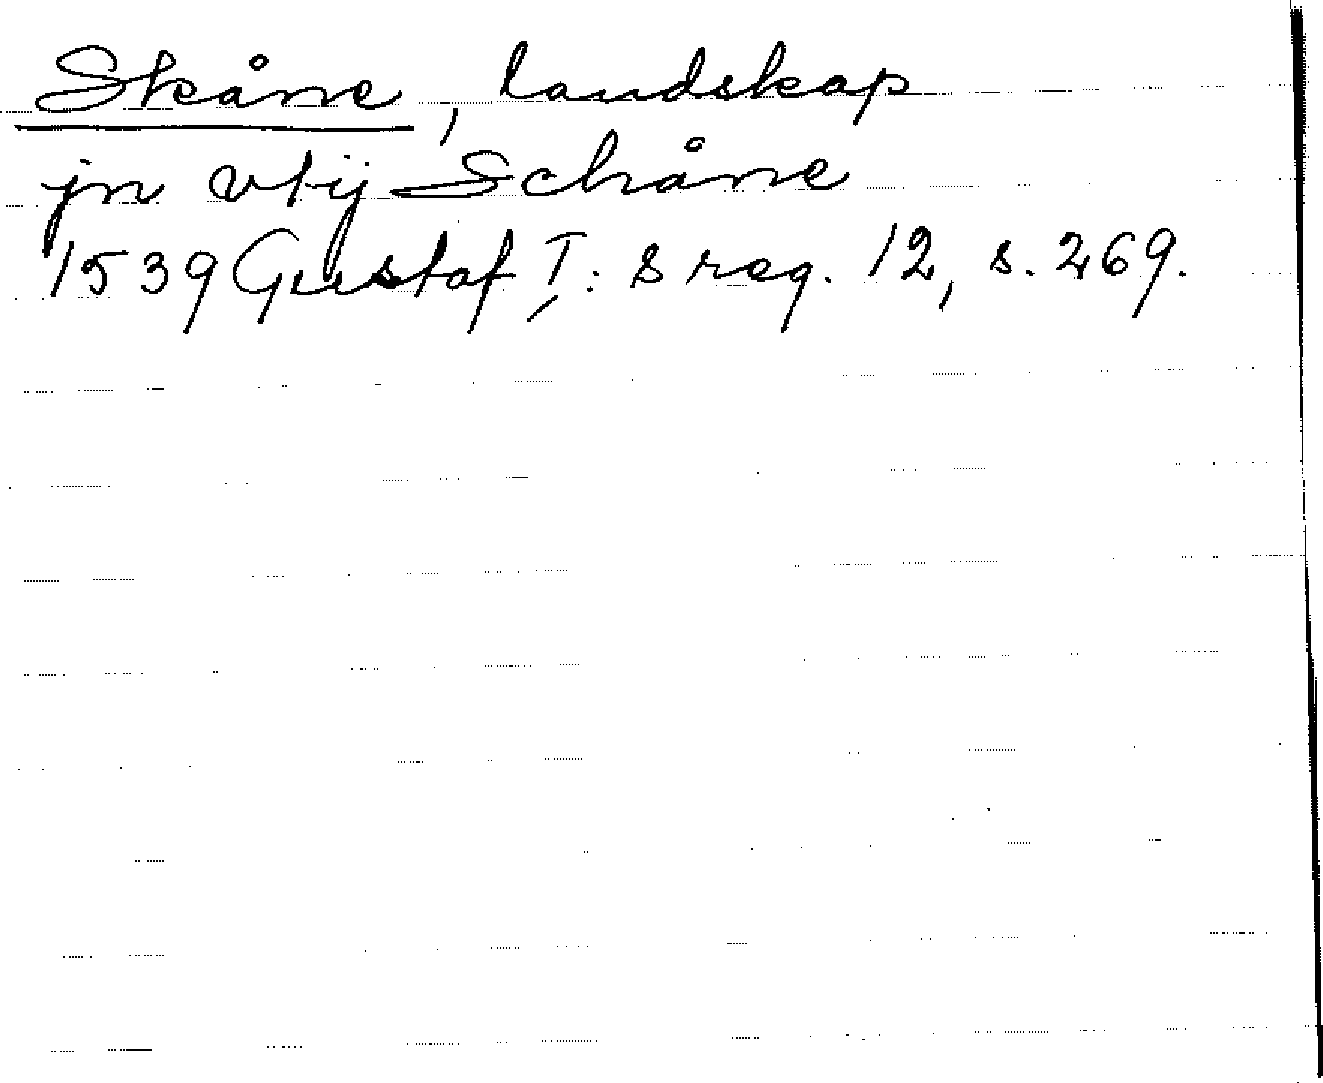 Skåne, landskap
jn vtij Schåne
1539 Gustaf I: s reg. 12, s. 269.